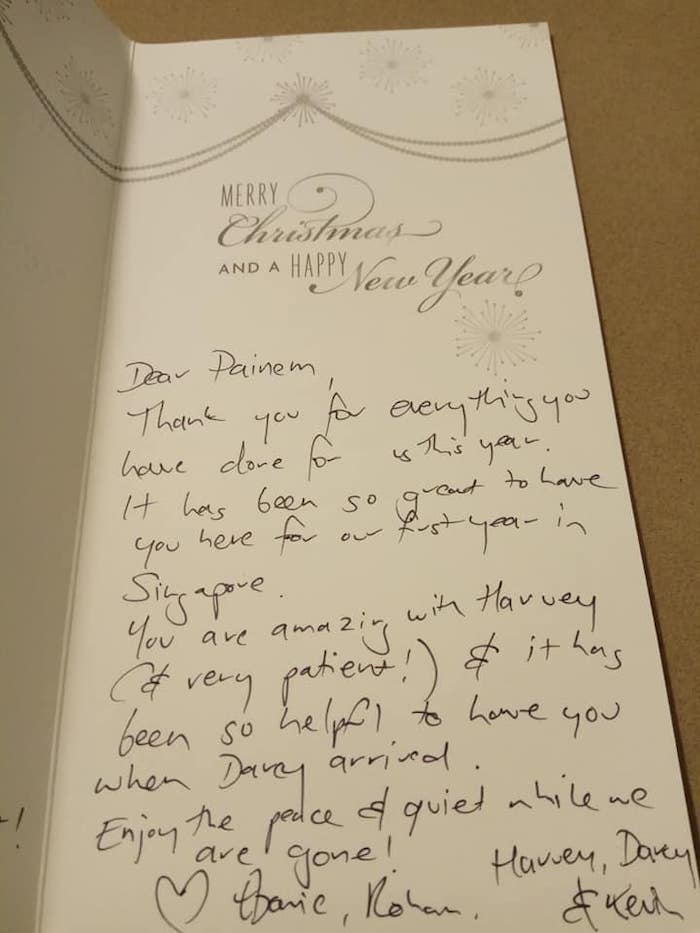 MERRY
Christmas
AND A HAPPY New Year
Dear Painem,
Thank you for everything you
have done for us this year.
It has been so great to have
you here for our first year in
Singapore.
You are amazing with Harvey
(& very patient!) & it has
been so helpful to have you
when Darcy arrived.
Enjoy the peace & quiet while we
are gone!
Harvey, Darcy
♡ Rohan.
&
!